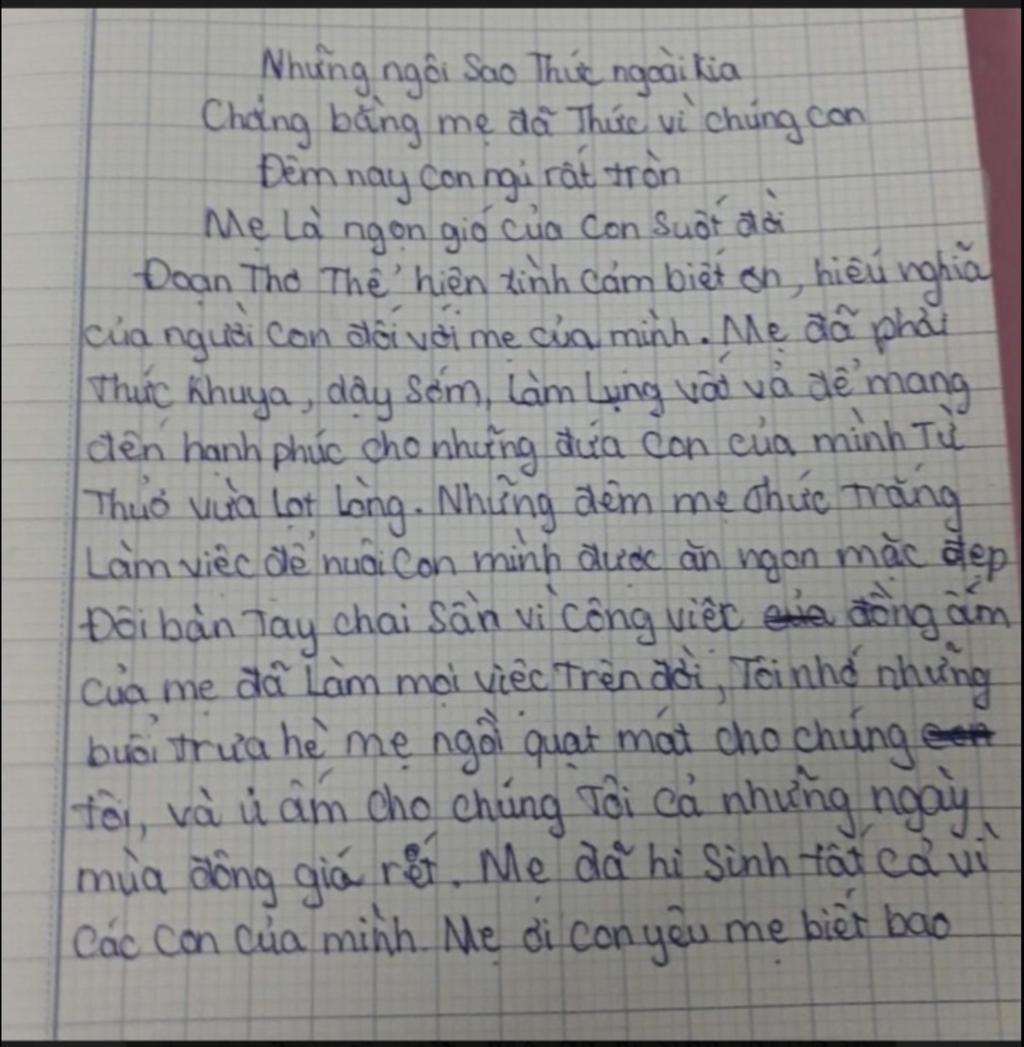 Những ngôi Sao Thức ngoài kia
Chẳng bằng mẹ đã Thức vì chúng con
Đêm nay con ngủ rất tròn
Mẹ Là ngọn gió của Con Suốt đời
Đoạn Thơ Thể hiện tình cảm biết ơn, hiếu nghĩa
của người Con đối với mẹ của mình. Mẹ đã phải
Thức Khuya, dậy Sớm, làm Lụng vất vả để mang
đến hạnh phúc cho những đứa Con của mình Từ
Thuở vừa Lọt Lòng. Những đêm mẹ thức Trắng
Làm việc để nuôi Con mình được ăn ngon mặc đẹp
Đôi bàn Tay chai Sần vì Công việc đồng ấm
của mẹ đã Làm mọi việc Trên đời, Tôi nhớ những
buổi Trưa hè mẹ ngồi quạt mát cho chúng
tôi, và ủ ấm Cho chúng Tôi cả những ngày
mùa đông giá rét. Mẹ đã hi Sinh tất cả vì
Các Con Của mình. Mẹ ơi Con yêu mẹ biết bao